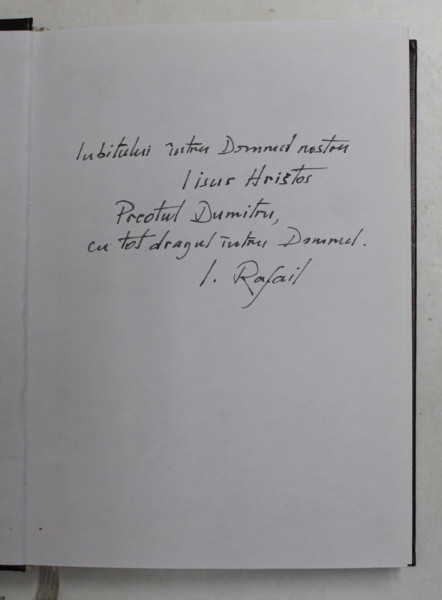 Iubitului întru Domnul nostru
Iisus Hristos
Preotul Dumitru,
cu tot dragul întru Domnul.
I. Rafail